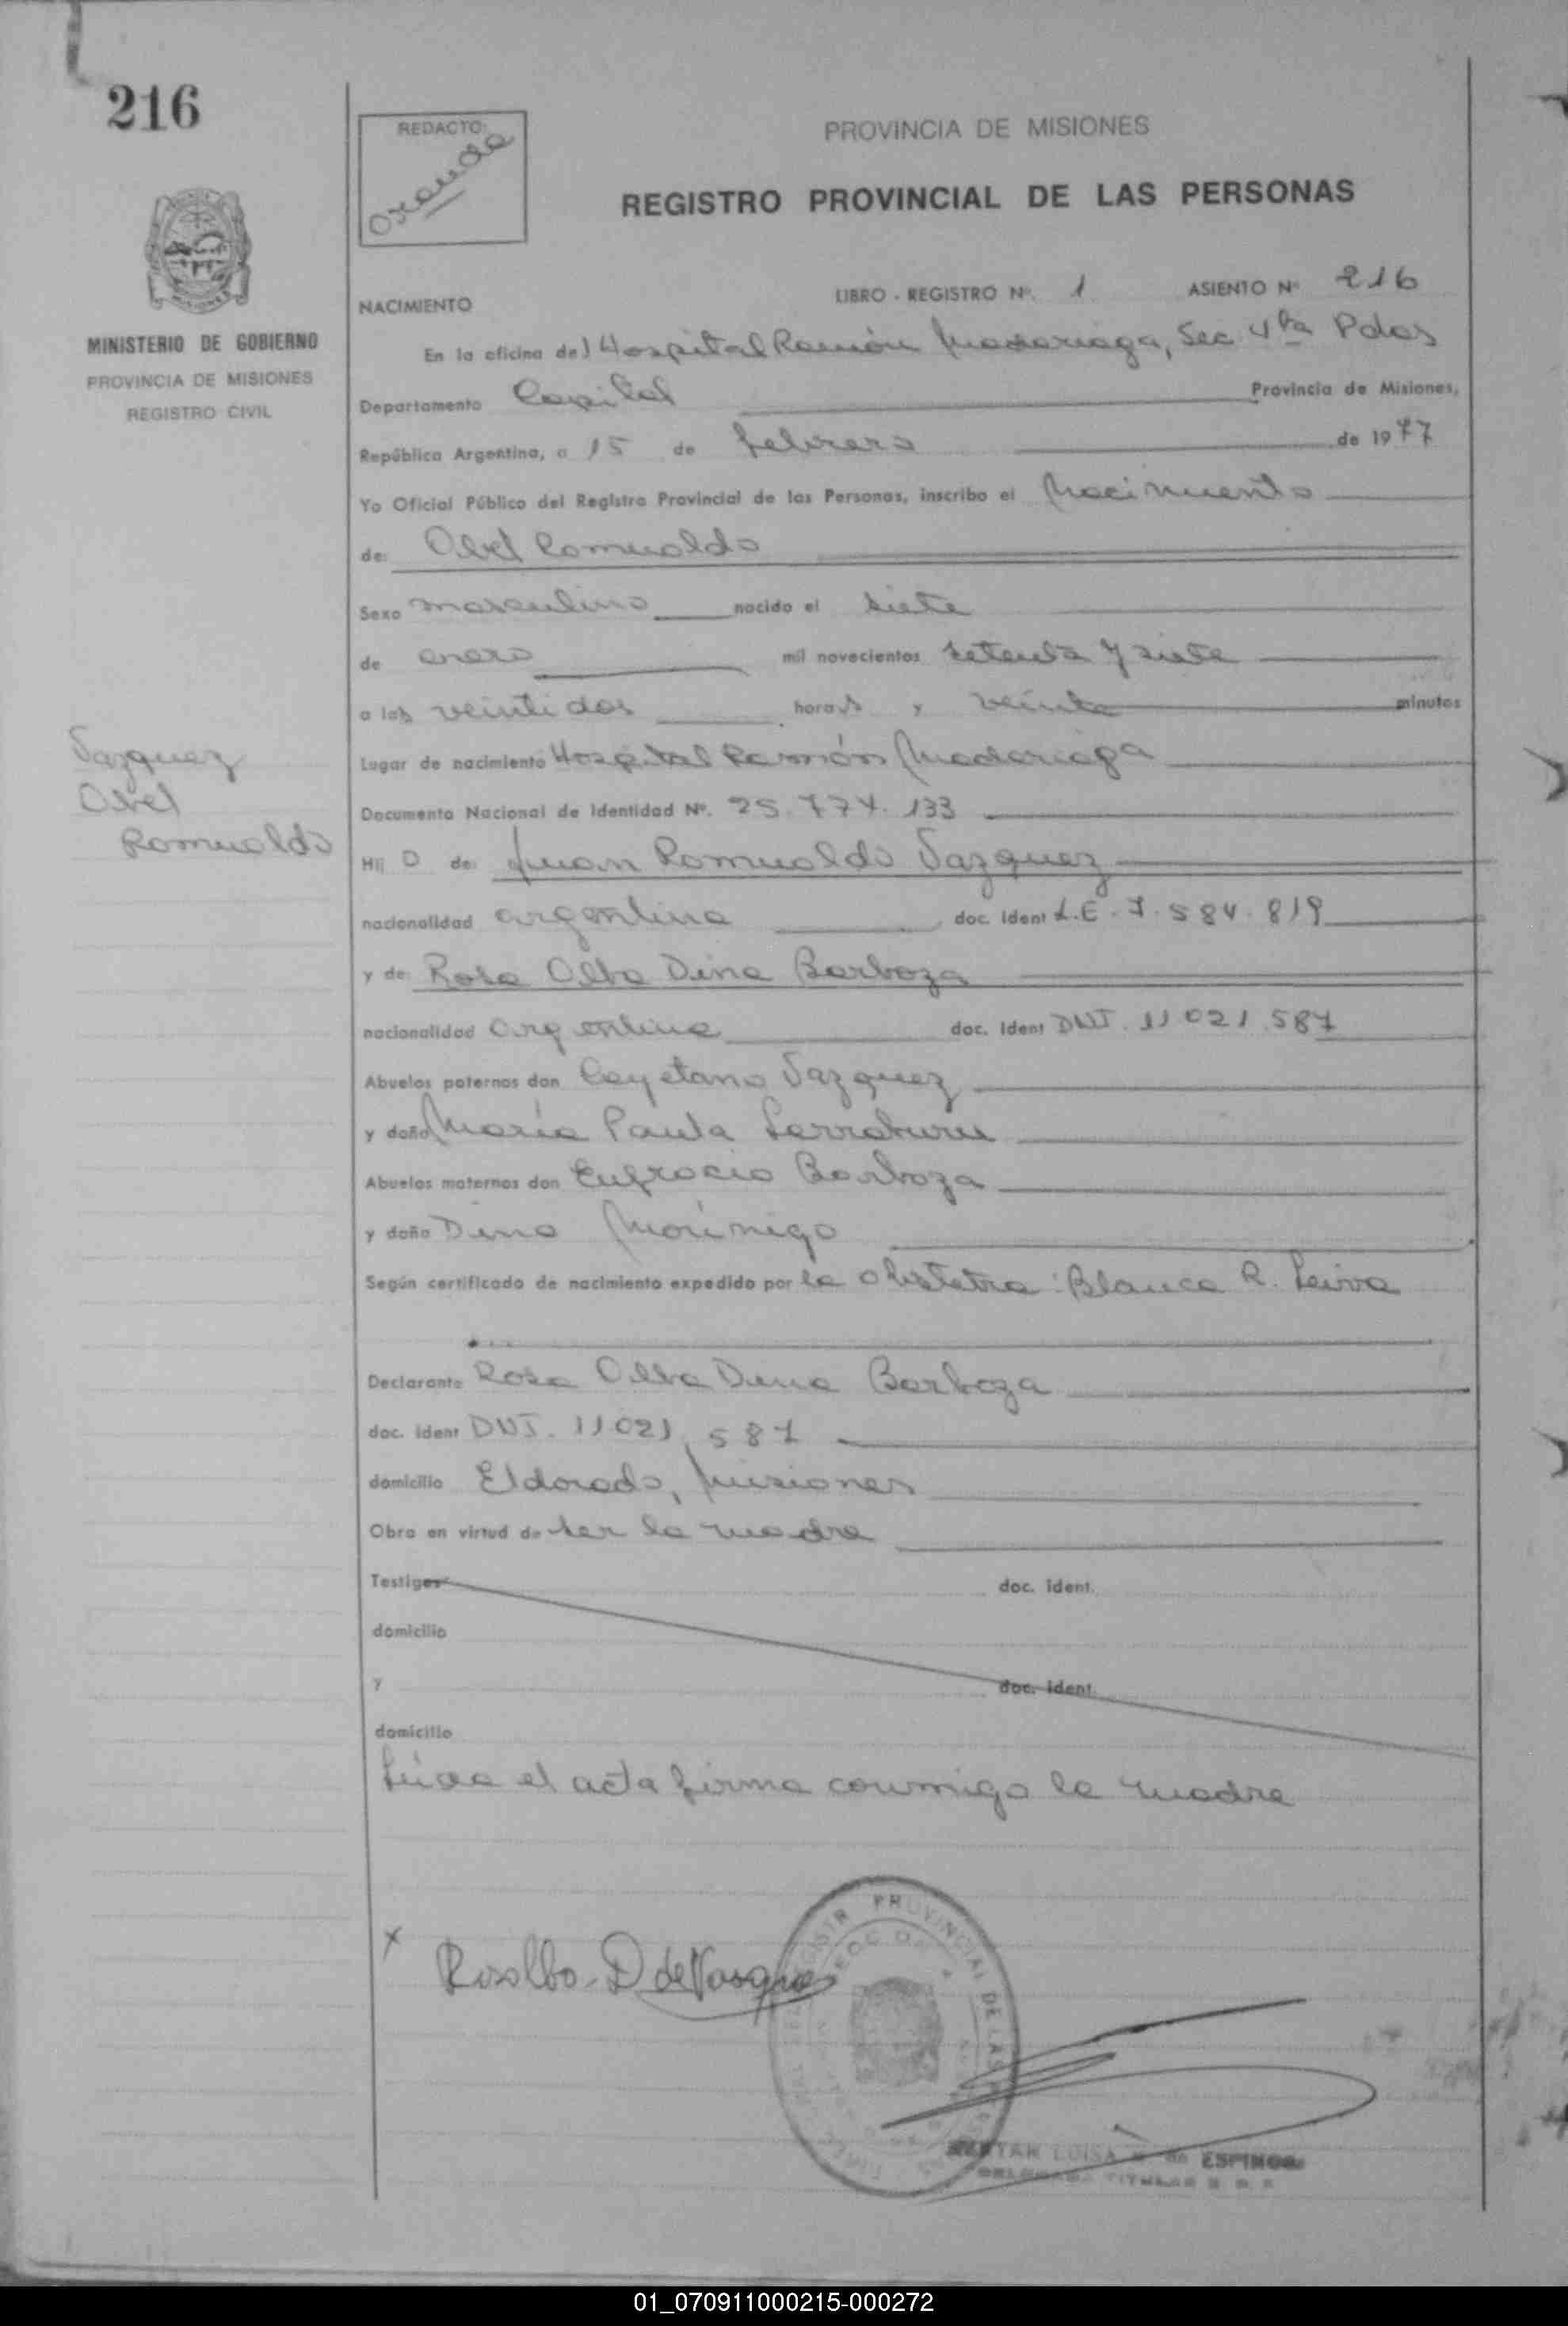 216
MINISTERIO DE GOBIERNO
PROVINCIA DE MISIONES
REGISTRO CIVIL
Vazquez
Abel
Romualdo
REDACTO:
PROVINCIA DE MISIONES
REGISTRO PROVINCIAL DE LAS PERSONAS
NACIMIENTO LIBRO - REGISTRO Nº. 1 ASIENTO Nº 216
En la oficina del Hospital Ramón Madariaga, Sec 4ta Pdas
Departamento Capital Provincia de Misiones,
República Argentina, a 15 de febrero de 1977
Yo Oficial Público del Registro Provincial de las Personas, inscribo el Nacimiento
de: Abel Romualdo
Sexo masculino nacido el siete
de enero mil novecientos setenta y siete
a las veintidos horas y veinte minutos
Lugar de nacimiento Hospital Ramón Madariaga
Documento Nacional de Identidad Nº. 25.774.133
Hij o de: Juan Romualdo Vazquez
nacionalidad argentina doc. ident L.E. 7.584.819
y de: Rosa Alba Dina Barboza
nacionalidad argentina doc. ident DNI. 11.021.587
Abuelos paternos don Cayetano Vazquez
y doña María Paula
Abuelos maternos don Eufrocio Barboza
y doña Dina Morinigo
Según certificado de nacimiento expedido por la obstetra: Blanca R. Leiva
Declarante Rosa Alba Dina Barboza
doc. ident DNI. 11.021.587
domicilio Eldorado, Misiones
Obra en virtud de ser la madre
Testigos doc. ident.
domicilio
y doc. ident.
domicilio
Leída el acta firma conmigo la madre
x Rosalba D de Vasques
REGISTRO PROVINCIAL DE LAS
LUISA de ESPINOSA
TITULAR
01_070911000215-000272